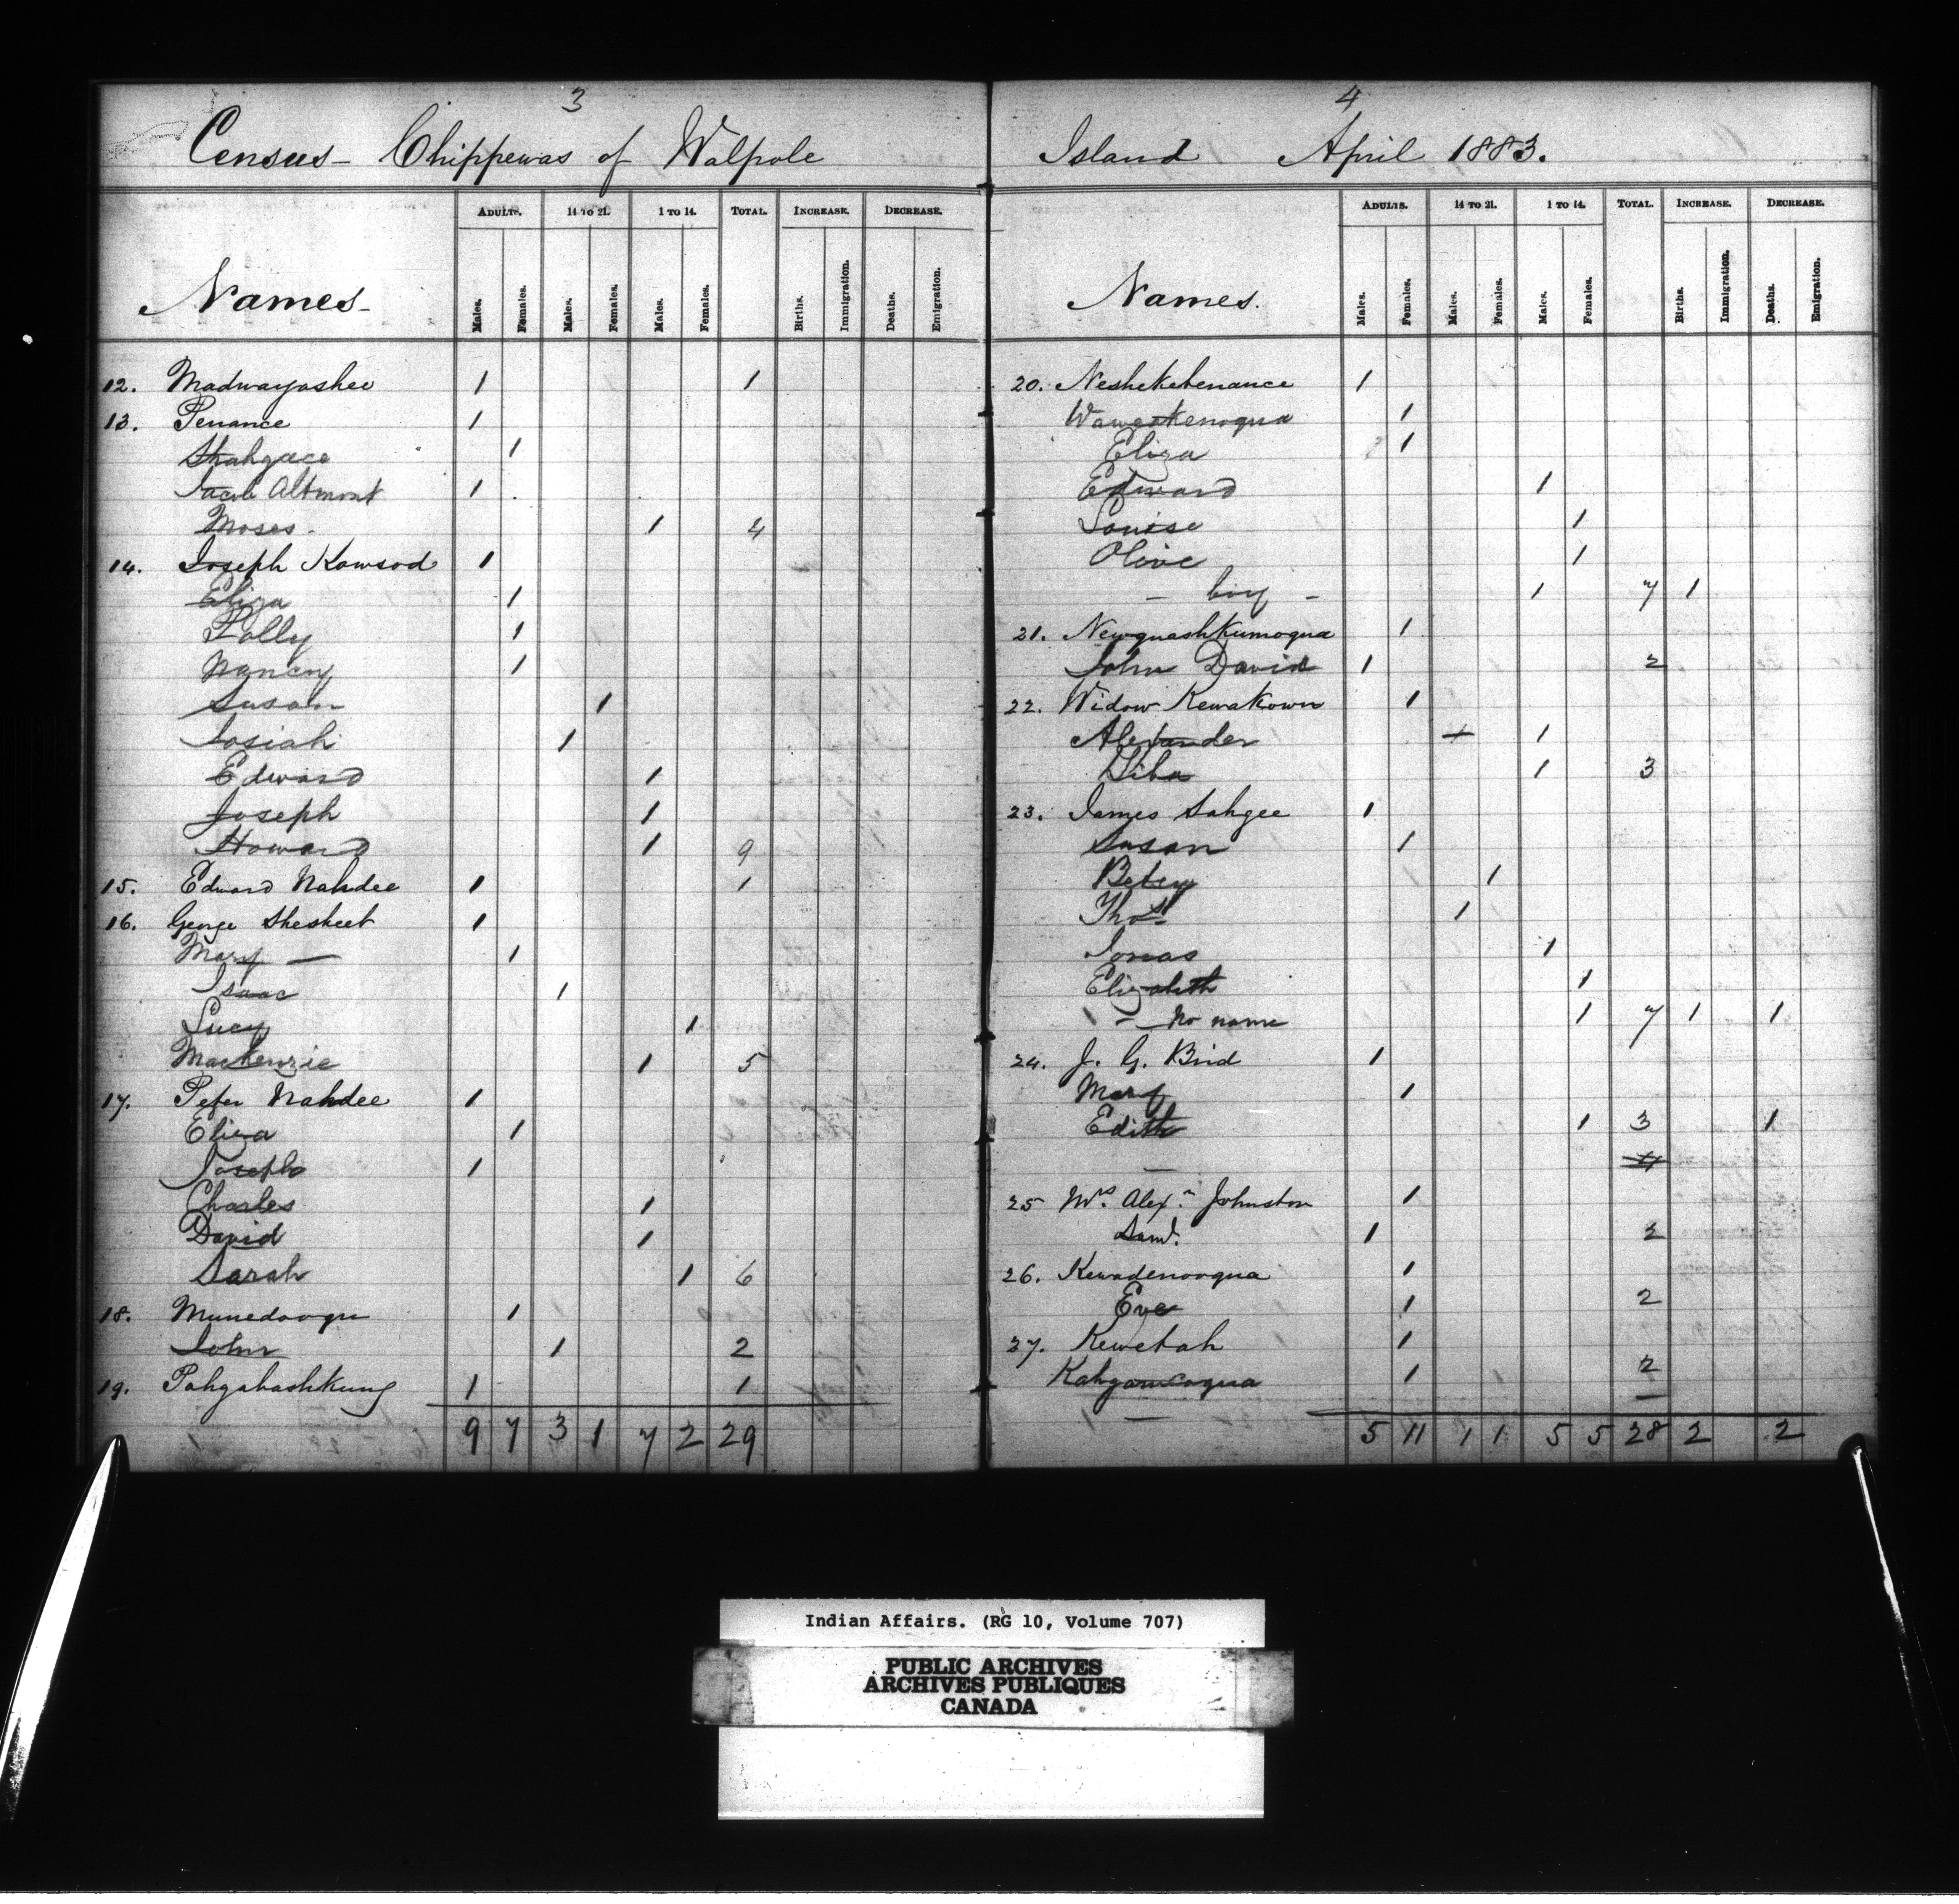 3
Census - Chippewas of Walpole
ADULTS. 14 TO 21. 1 TO 14. TOTAL. INCREASE. DECREASE.
Names - Males. Females. Males. Females. Males. Females. Births. Immigration. Deaths. Emigration.
12. Madwayashee 1 1
13. Penance 1
Shahguce 1
Jacob Altmont 1
Moses. 1 4
14. Joseph Kowsod 1
Eliza 1
Polly 1
Nancy 1
Susan 1
Josiah 1
Edward 1
Joseph 1
Howard 1 9
15. Edward Nahdee 1 1
16. George Shesheet 1
Mary — 1
Isaac 1
Lucy 1
Mackenzie 1 5
17. Peter Nahdee 1
Eliza 1
Joseph 1
Charles 1
David 1
Sarah 1 6
18. Munedooqu 1
John 1 2
19. Pahgabashkung 1 1
9 7 3 1 7 2 29
4
Island April 1883.
ADULTS. 14 TO 21. 1 TO 14. TOTAL. INCREASE. DECREASE.
Names. Males. Females. Males. Females. Males. Females. Births. Immigration. Deaths. Emigration.
20. Neshekebenance 1
Waweskenoqua 1
Eliza 1
Edward 1
Louise 1
Olive 1
- boy - 1 7 1
21. Newquashkumoqua 1
John David 1 2
22. Widow Kewakown 1
Alexander 1 1
1 3
23. James Sahgee 1
Susan 1
Betsy 1
Thos. 1
Jonas 1
Elizabeth 1
- No name 1 7 1 1
24. J. G. Bird 1
Mary 1
Edith 1 3 1
4
25 Mrs. Alexr. Johnston 1
Saml. 1 2
26. Kewadenooqua 1
Eve 1 2
27. Kewetah 1
Kahgawcoqua 1 2
5 11 1 1 5 5 28 2 2
Indian Affairs. (RG 10, Volume 707)
PUBLIC ARCHIVES
ARCHIVES PUBLIQUES
CANADA